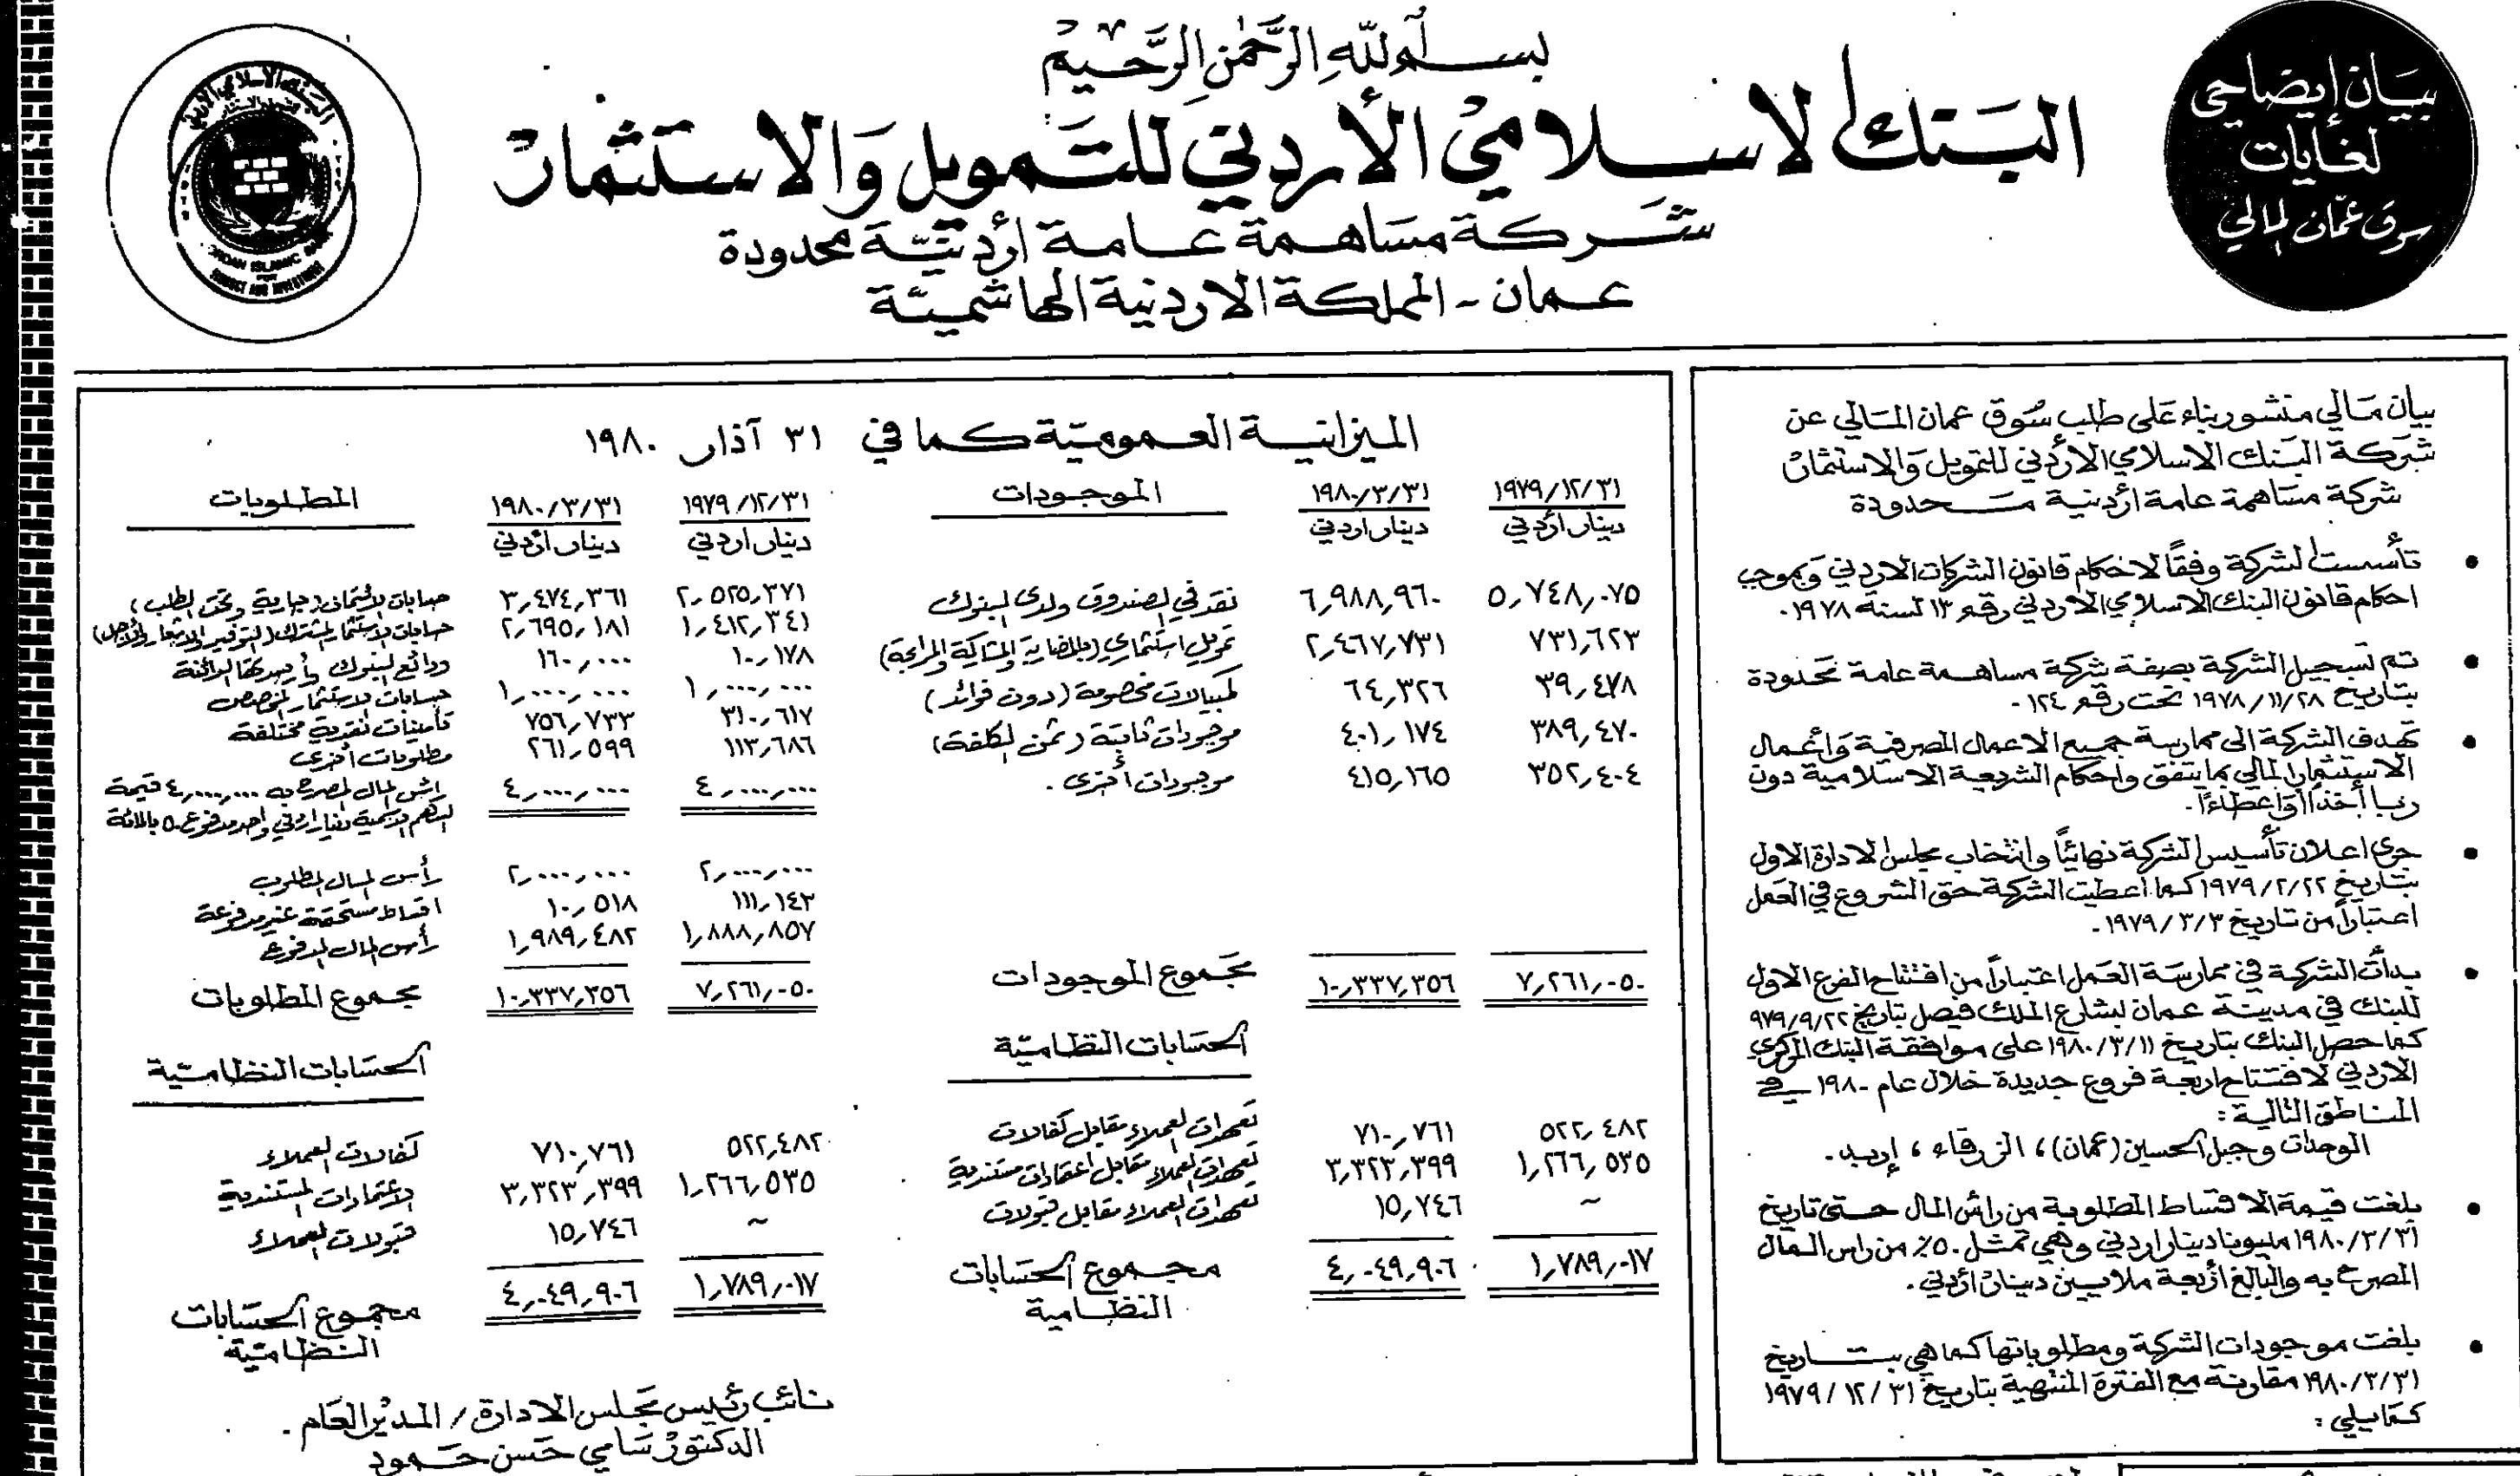 بسم الله الرحمن الرحيم
البنك الاسلامي الأردني للتمويل والاستثمار
شركة مساهمة عامة أردنية محدودة
عمان - المملكة الاردنية الهاشمية
بيان إيضاحي
لغايات
سوق عمّان المالي
بيان مالي منشور بناء على طلب سوق عمان المالي عن
شركة البنك الاسلامي الأردني للتمويل والاستثمار
شركة مساهمة عامة أردنية محدودة
• تأسست الشركة وفقاً لاحكام قانون الشركات الاردني وبموجب
احكام قانون البنك الاسلامي الاردني رقم ١٣ لسنة ١٩٧٨.
• تم تسجيل الشركة بصفة شركة مساهمة عامة محدودة
بتاريخ ١٩٧٨/١١/٢٨ تحت رقم ١٢٤.
• تهدف الشركة الى ممارسة جميع الاعمال المصرفية وأعمال
الاستثمار المالي بما يتفق واحكام الشريعة الاسلامية دون
ربا أخذاً أو اعطاءً.
• جرى اعلان تأسيس الشركة نهائياً وانتخاب مجلس الادارة الاول
بتاريخ ١٩٧٩/٢/٢٢ كما اعطيت الشركة حق الشروع في العمل
اعتباراً من تاريخ ١٩٧٩/٣/٣.
• بدأت الشركة في ممارسة العمل اعتباراً من افتتاح الفرع الاول
للبنك في مدينة عمان بشارع الملك فيصل بتاريخ ٩٧٩/٩/٢٢
كما حصل البنك بتاريخ ١٩٨٠/٣/١١ على موافقة البنك المركزي
الاردني لافتتاح اربعة فروع جديدة خلال عام ١٩٨٠ في
المناطق التالية :
الوحدات وجبل الحسين (عمان)، الزرقاء ، إربد.
• بلغت قيمة الاقساط المطلوبة من رأس المال حتى تاريخ
١٩٨٠/٣/٣١ مليونا دينار اردني وهي تمثل ٥٠٪ من راس المال
المصرح به والبالغ أربعة ملايين دينار أردني.
• بلغت موجودات الشركة ومطلوباتها كما هي بتاريخ
١٩٨٠/٣/٣١ مقارنة مع الفترة المنتهية بتاريخ ١٩٧٩/١٢/٣١
كما يلي :
الميزانية العمومية كما في ٣١ آذار ١٩٨٠
١٩٧٩/١٢/٣١ ١٩٨٠/٣/٣١ الموجودات
دينار أردني دينار اردني
٥,٧٤٨,٠٧٥ ٦,٩٨٨,٩٦٠ نقد في الصندوق ولدى البنوك
٧٣١,٦٢٣ ٢,٤٦٧,٧٣١ تمويل استثماري (بالمضاربة والمشاركة والمرابحة)
٣٩,٤٧٨ ٦٤,٣٢٦ كمبيالات مخصومة (دون فوائد)
٣٨٩,٤٧٠ ٤٠١,١٧٤ موجودات ثابتة (ثمن الكلفة)
٣٥٢,٤٠٤ ٤١٥,١٦٥ موجودات أخرى.
٧,٢٦١,٠٥٠ ١٠,٣٣٧,٣٥٦ مجموع الموجودات
الحسابات النظامية
٥٢٢,٤٨٢ ٧١٠,٧٦١ تعهدات العملاء مقابل كفالات
١,٢٦٦,٥٣٥ ٣,٣٢٣,٣٩٩ تعهدات العملاء مقابل اعتمادات مستندية
~ ١٥,٧٤٦ تعهدات العملاء مقابل قبولات
١,٧٨٩,٠١٧ ٤,٠٤٩,٩٠٦ مجموع الحسابات
النظامية
١٩٧٩/١٢/٣١ ١٩٨٠/٣/٣١ المطلوبات
دينار اردني دينار أردني
٢,٥٢٥,٣٧١ ٣,٤٧٤,٣٦١ حسابات الائتمان (جارية وتحت الطلب)
١,٤١٢,٣٤١ ٢,٦٩٥,١٨١ حسابات الاستثمار المشترك (التوفير والاشعار والأجل)
١٠,١٧٨ ١٦٠,٠٠٠ ودائع البنوك وأرصدتها الدائنة
١,٠٠٠,٠٠٠ ١,٠٠٠,٠٠٠ حسابات الاستثمار المخصص
٣١٠,٦١٧ ٧٥٦,٧٣٣ تأمينات نقدية مختلفة
١١٣,٦٨٦ ٢٦١,٥٩٩ مطلوبات أخرى
٤,٠٠٠,٠٠٠ ٤,٠٠٠,٠٠٠ رأس المال المصرح به ٤,٠٠٠,٠٠٠ قيمة
السهم الاسمية دينار اردني واحد مدفوع ٥٠ بالمائة
٢,٠٠٠,٠٠٠ ٢,٠٠٠,٠٠٠ رأس المال المطلوب
١١١,١٤٣ ١٠,٥١٨ اقساط مستحقة غير مدفوعة
١,٨٨٨,٨٥٧ ١,٩٨٩,٤٨٢ رأس المال المدفوع
٧,٢٦١,٠٥٠ ١٠,٣٣٧,٣٥٦ مجموع المطلوبات
الحسابات النظامية
٥٢٢,٤٨٢ ٧١٠,٧٦١ كفالات العملاء
١,٢٦٦,٥٣٥ ٣,٣٢٣,٣٩٩ الاعتمادات المستندية
~ ١٥,٧٤٦ قبولات العملاء
١,٧٨٩,٠١٧ ٤,٠٤٩,٩٠٦ مجموع الحسابات
النظامية
نائب رئيس مجلس الادارة / المدير العام.
الدكتور سامي حسن حمود